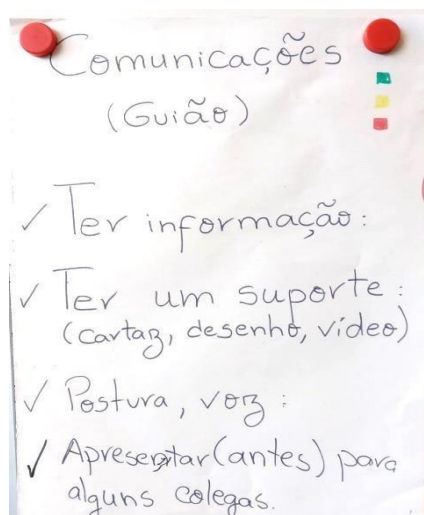 Comunicações
(Guião)
✓ Ter informação:
✓ Ter um suporte:
(cartaz, desenho, vídeo)
✓ Postura, voz:
✓ Apresentar (antes) para
alguns colegas.